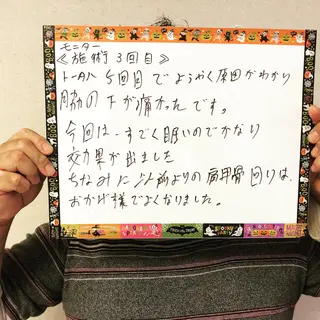 モニター
≪施術3回目≫
トータル5回目でようやく原因がわかり
脇の下が痛かったです。
今回は、すごく眠いのでかなり
効果が出ました
ちなみに以前よりの肩甲骨回りは、
おかげ様でよくなりました。